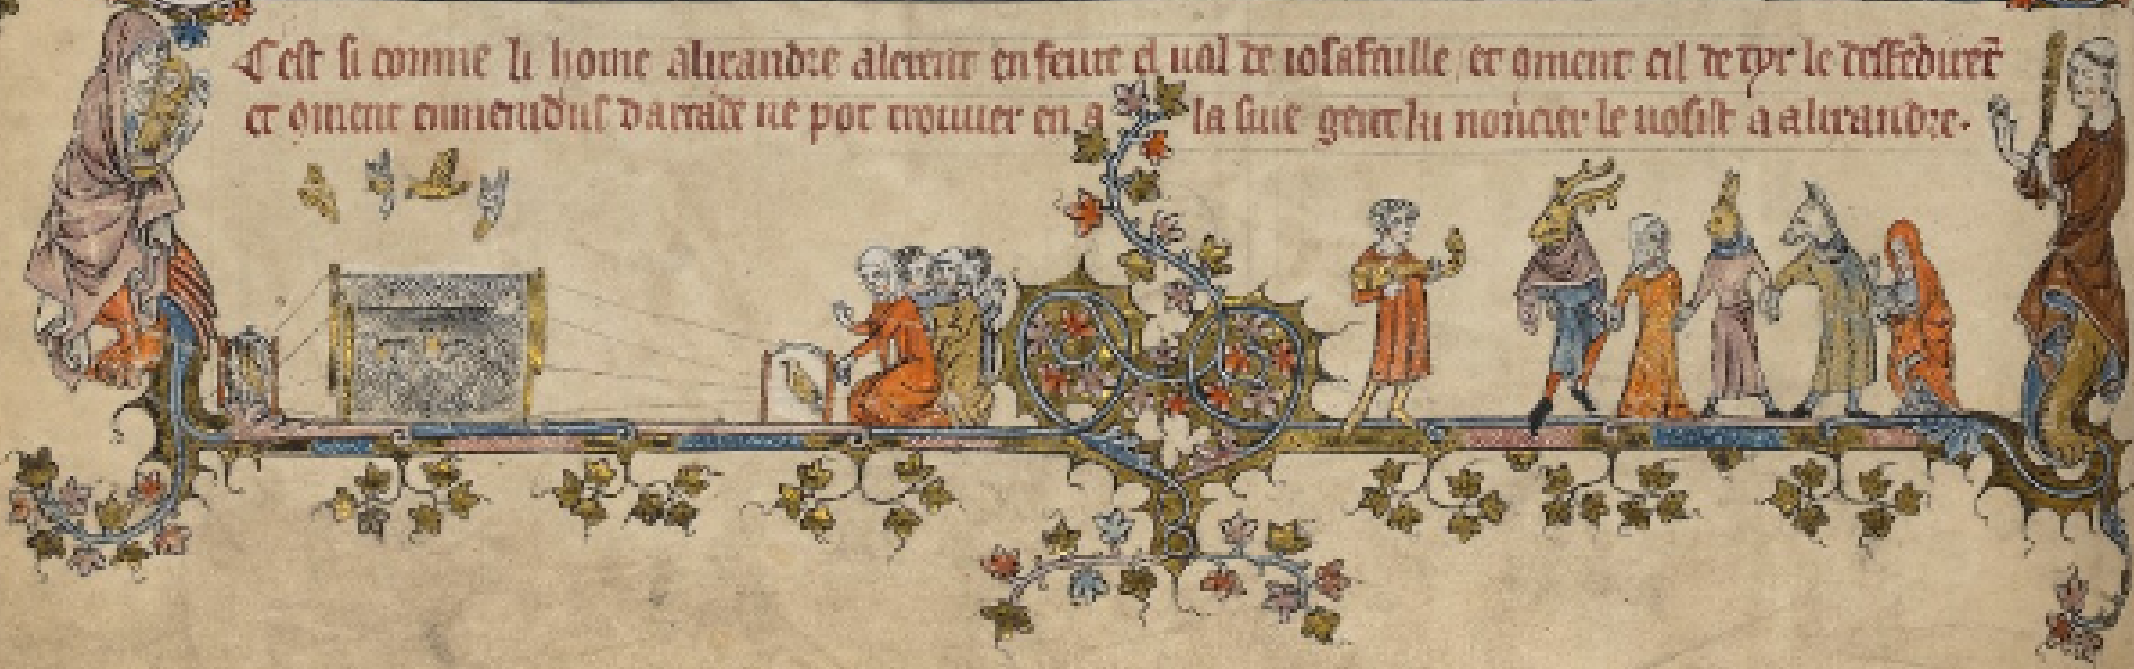 Cest si comme li home alixandre alerent en feure el ual de iosafaille et ꝯment cil de tyr le deffēdirēt
et ꝯment emenidus darcade ne pot trouuer en la siue gent ki noncier le uosist a alixandre.